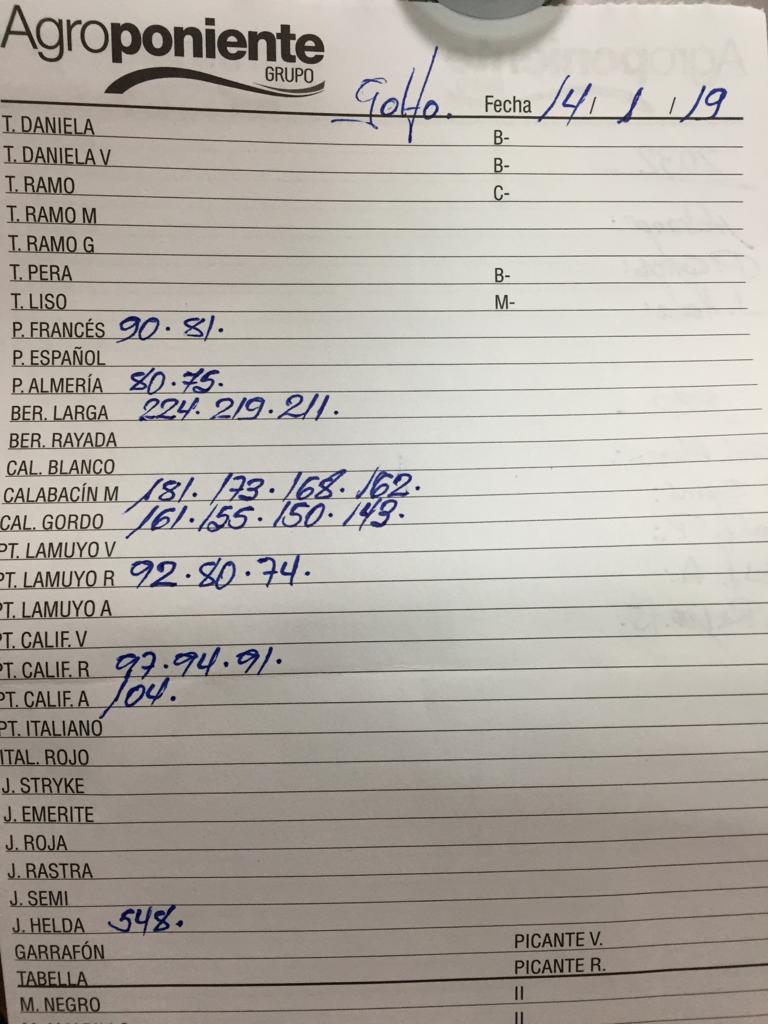 Agroponiente
GRUPO
Golfo. Fecha 14 / 1 / 19
T. DANIELA B-
T. DANIELA V B-
T. RAMO C-
T. RAMO M
T. RAMO G
T. PERA B-
T. LISO M-
P. FRANCÉS 90. 81.
P. ESPAÑOL
P. ALMERÍA 80. 75.
BER. LARGA 224. 219. 211.
BER. RAYADA
CAL. BLANCO
CALABACÍN M 181. 173. 168. 162.
CAL. GORDO 161. 155. 150. 143.
PT. LAMUYO V
PT. LAMUYO R 92. 80. 74.
PT. LAMUYO A
PT. CALIF. V
PT. CALIF. R 97. 94. 91.
PT. CALIF. A 104.
PT. ITALIANO
ITAL. ROJO
J. STRYKE
J. EMERITE
J. ROJA
J. RASTRA
J. SEMI
J. HELDA 548.
GARRAFÓN PICANTE V.
TABELLA PICANTE R.
M. NEGRO II
II